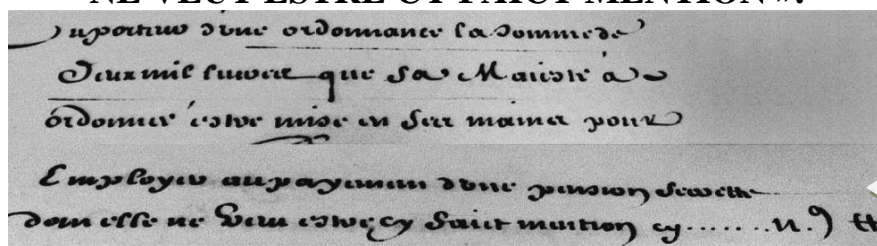 NE VEUT ESTRE CY FAICT MENTION ».
Au porteur d'une ordonnance la somme de
Deux mil livres que Sa Maiesté a
ordonner estre mise en ses mains pour
Employer au payement d'une pension secrette
dont elle ne veut estre cy faict mention cy.......